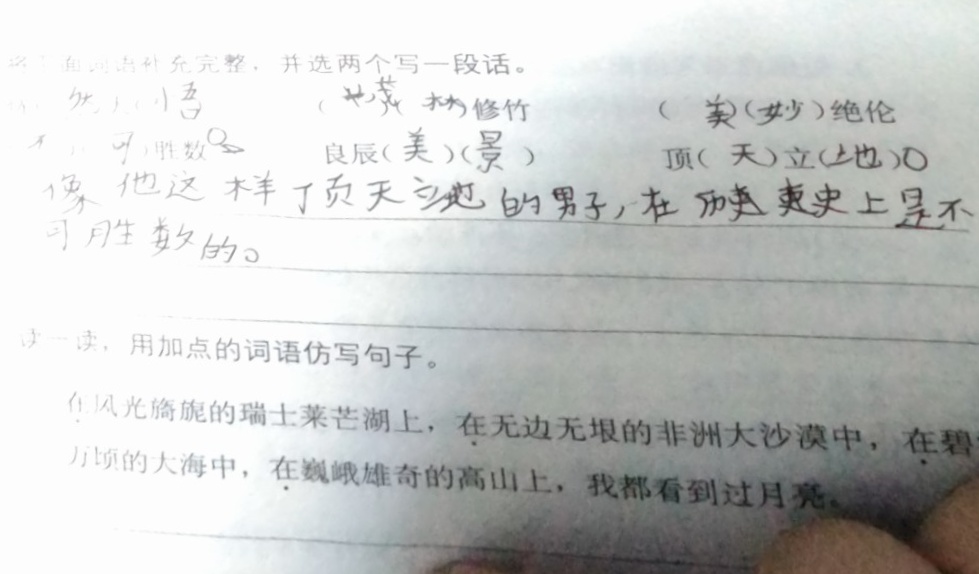 面词语补充完整，并选两个写一段话。
然 悟 （茂 林）修竹 （美）（妙）绝伦
不 可）胜数 良辰（美）（景） 顶（天）立（地）
像他这样顶天立地的男子，在历史上是不
可胜数的。
读一读，用加点的词语仿写句子。
在风光旖旎的瑞士莱芒湖上，在无边无垠的非洲大沙漠中，在碧
万顷的大海中，在巍峨雄奇的高山上，我都看到过月亮。